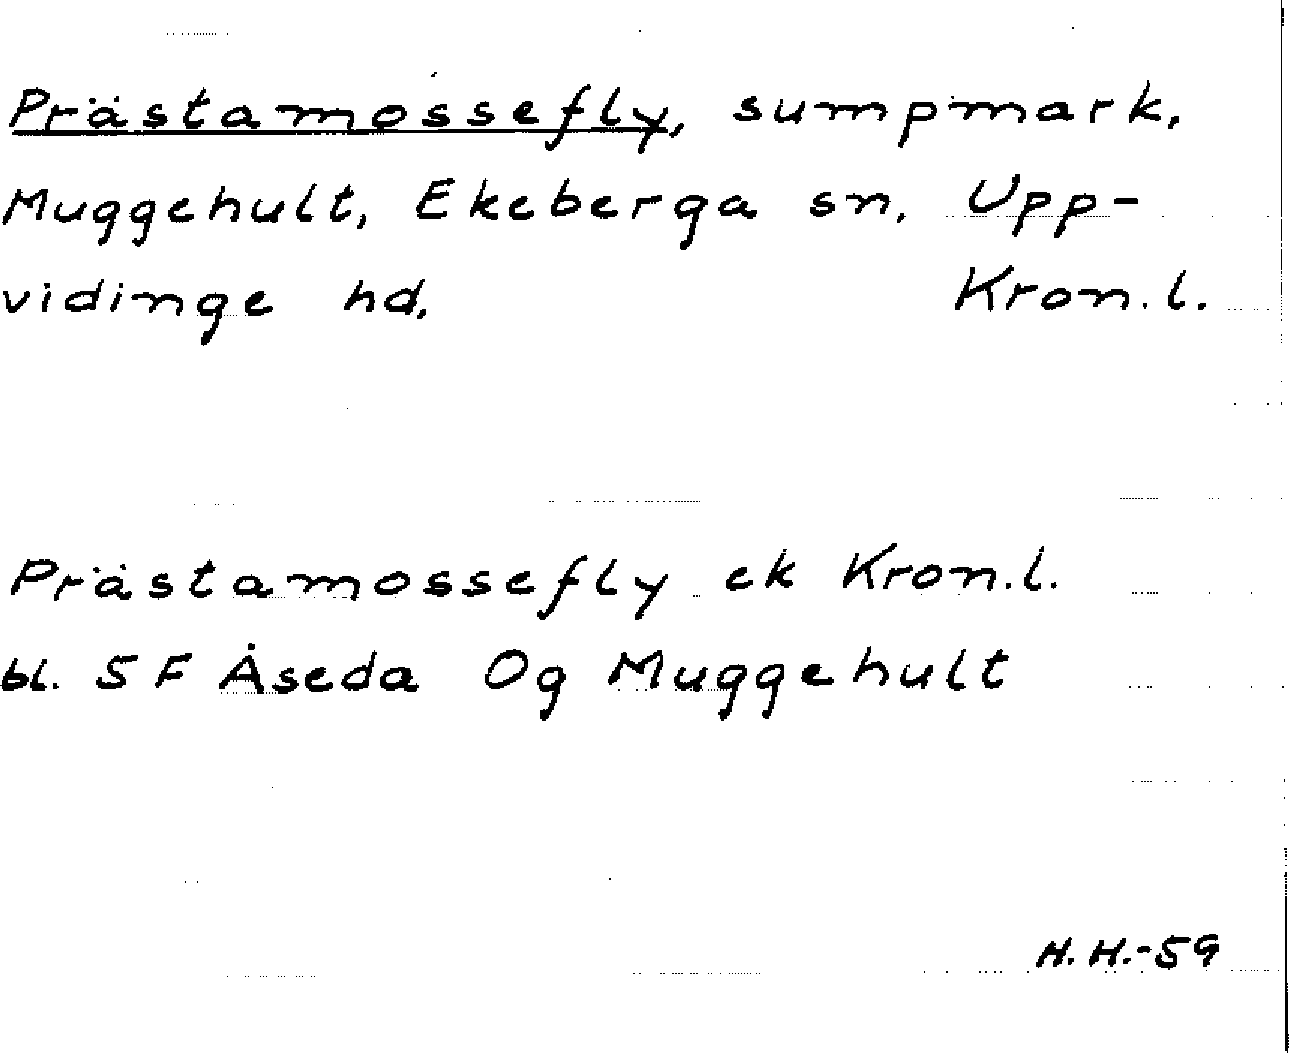 Prästamossefly, sumpmark,
Muggehult, Ekeberga sn, Upp-
vidinge hd, Kron.l.
Prästamossefly ek Kron.l.
bl. 5 F Åseda Og Muggehult
H.H.-59